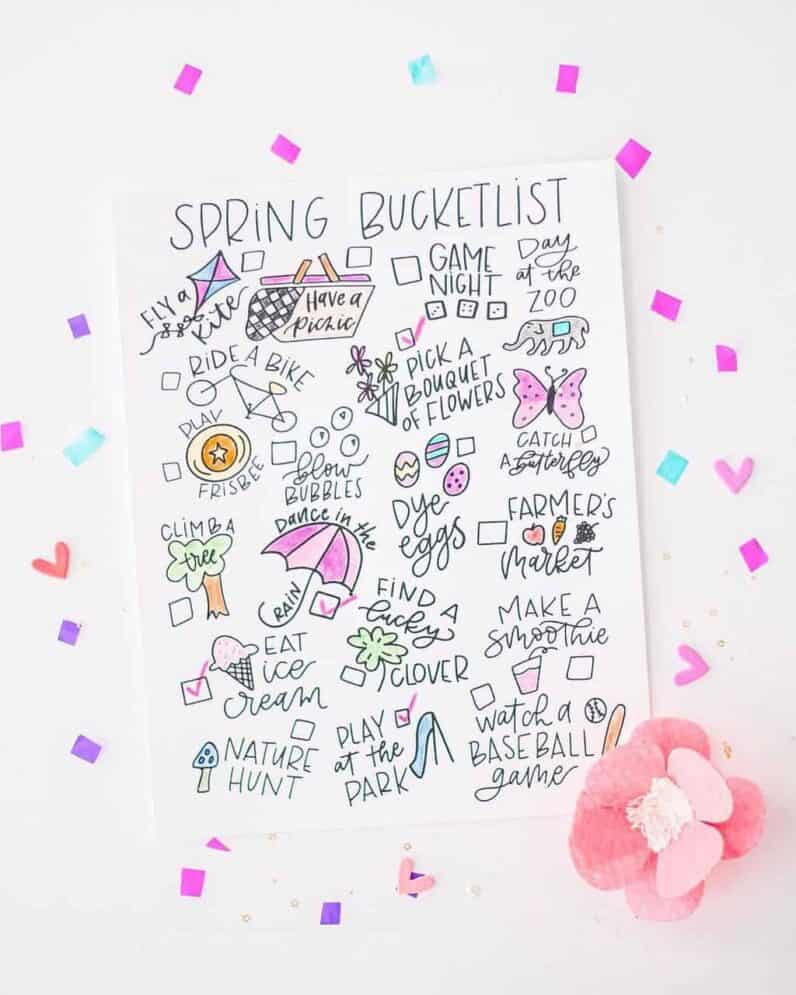 SPRING BUCKETLIST
FLY a
Kite
Have a
picnic
GAME
NIGHT
Day
at the
ZOO
RIDE A BIKE
PICK A
BOUQUET
OF FLOWERS
PLAY
FRISBEE
blow
BUBBLES
DYE
eggs
CATCH
A butterfly
CLIMB A
tree
Dance in the
RAIN
FARMER'S
market
FIND A
lucky
CLOVER
MAKE A
smoothie
EAT
ice
cream
NATURE
HUNT
PLAY
at the
PARK
watch a
BASEBALL
game